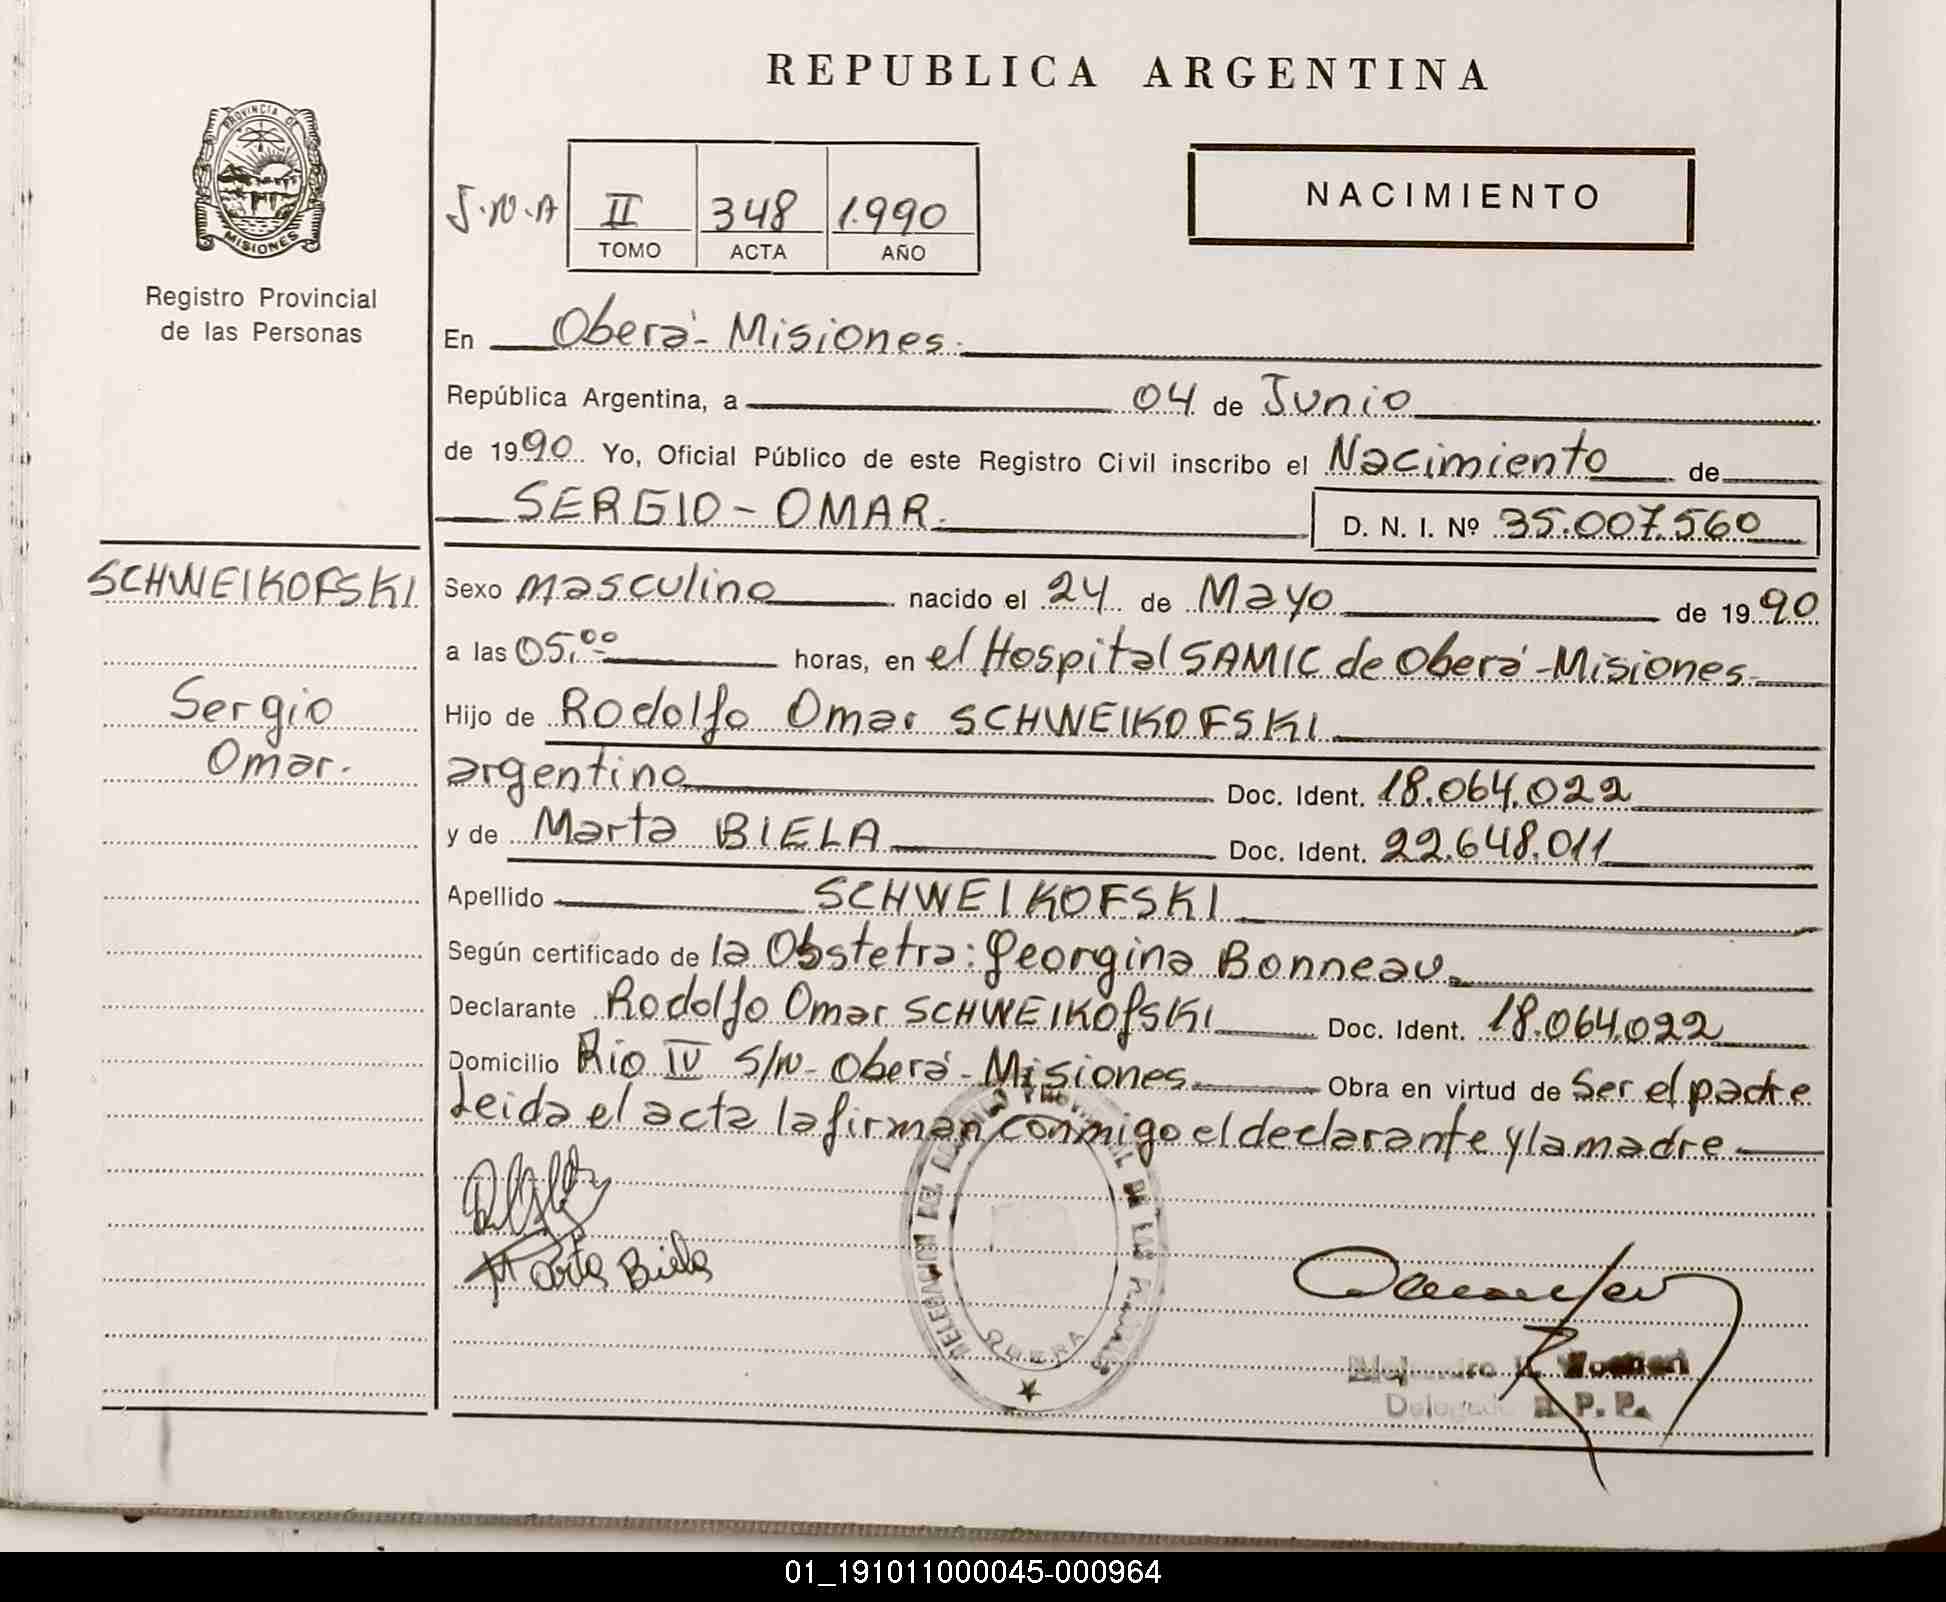 REPUBLICA ARGENTINA
PROVINCIA DE
MISIONES
Registro Provincial
de las Personas
J.N.A
II
348
1.990
TOMO
ACTA
AÑO
NACIMIENTO
En Oberá-Misiones.
República Argentina, a 04 de Junio
de 1990 Yo, Oficial Público de este Registro Civil inscribo el Nacimiento de
SERGIO-OMAR.
D. N. I. Nº 35.007.560
SCHWEIKOFSKI
Sergio
Omar.
Sexo masculino nacido el 24 de Mayo de 1990
a las 05,00 horas, en el Hospital SAMIC de Oberá-Misiones.
Hijo de Rodolfo Omar SCHWEIKOFSKI
argentino Doc. Ident. 18.064.022
y de Marta BIELA Doc. Ident. 22.648.011
Apellido SCHWEIKOFSKI
Según certificado de la Obstetra: Georgina Bonneau.
Declarante Rodolfo Omar SCHWEIKOfSKI Doc. Ident. 18.064.022
Domicilio Rio IV S/N-Oberá-Misiones. Obra en virtud de Ser el padre
Leida el acta la firman conmigo el declarante y la madre
Marta Biela
DELEGACION DEL PROVINCIAL DE LAS
OBERA
Delegado R. P. P.
01_191011000045-000964